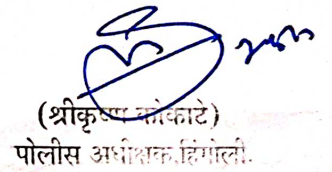 (श्रीकृष्ण कोकाटे)
पोलीस अधीक्षक,हिंगोली.